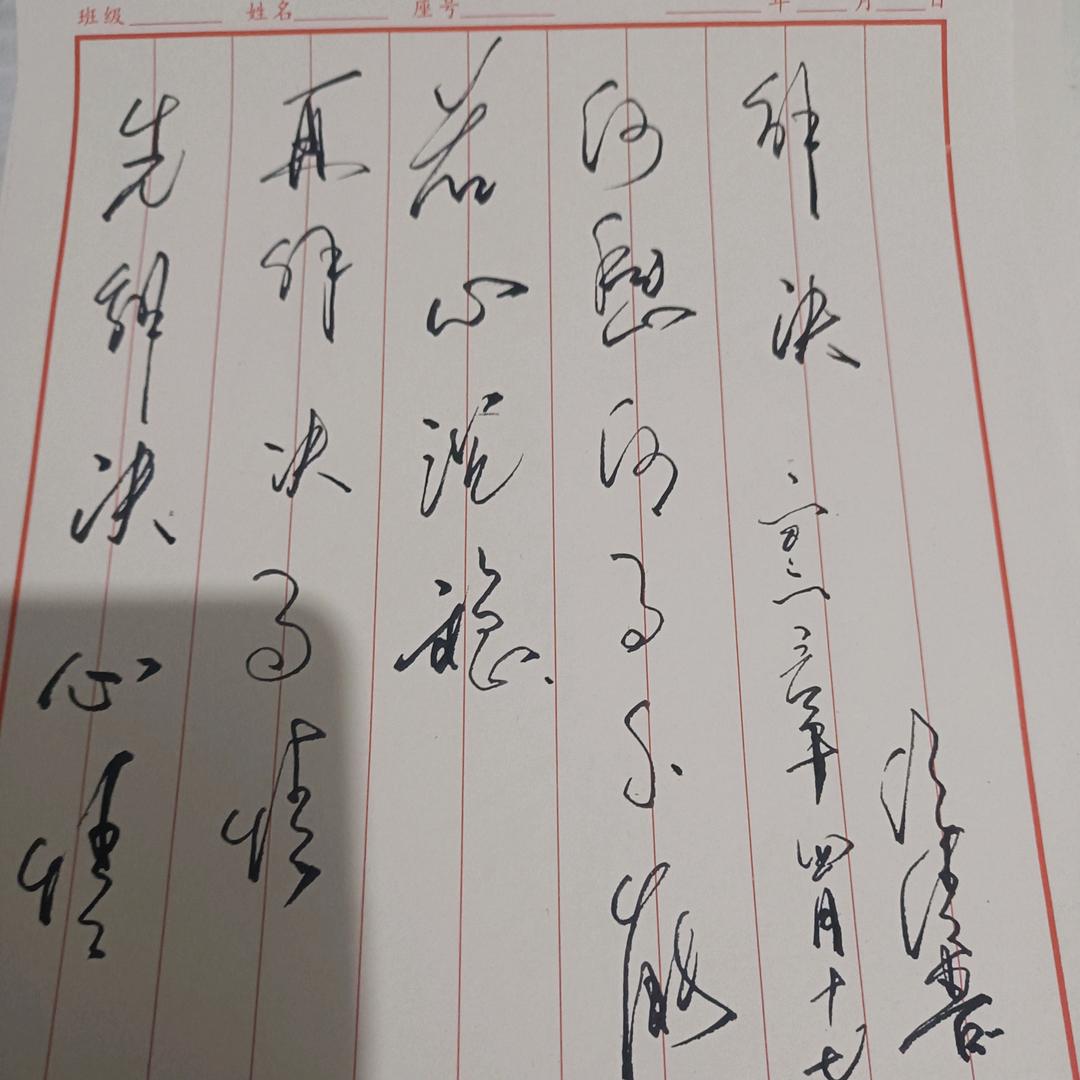 班级 姓名 座号 年 月 日
先解决心情
再解决事情
若心沉稳
何愁何事不能
解决 二零二六年四月十七